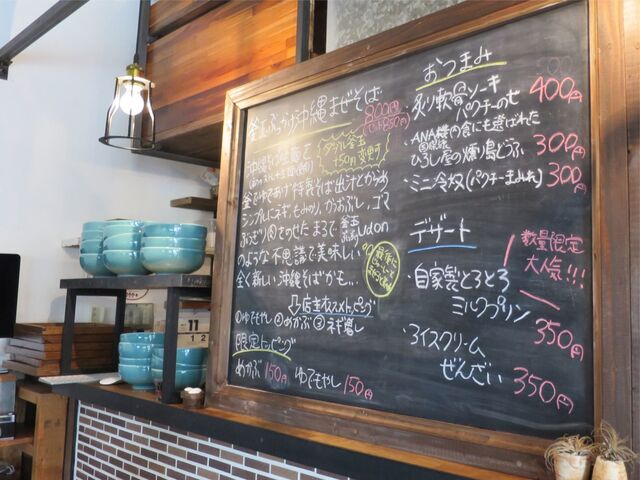 釜玉ぶっかけ沖縄まぜそば
800円
ダブル釜玉
+50円変更可
沖縄そば生麺を
釜でゆであげ特製そば出汁とからめ
シンプルにネギ、もみのり、かつおぶし、ゴマ
をのせたまるで、釜玉
udon
のような不思議で美味しい
全く新しい沖縄そばかも...
店主オススメトッピング
①ゆでもやし ②めかぶ ③ネギ増し
限定トッピング
めかぶ 150円 ゆでもやし 150円
おつまみ
炙り軟骨ソーキ
パクチーのせ 400円
・ANA機内食にも選ばれた
ひろし屋の燻り島どうふ 300円
・ミニ冷奴(パクチーまみれ) 300円
デザート
数量限定
大人気!!!
・自家製とろとろ
ミルクプリン
350円
・アイスクリーム
ぜんざい 350円
11
12